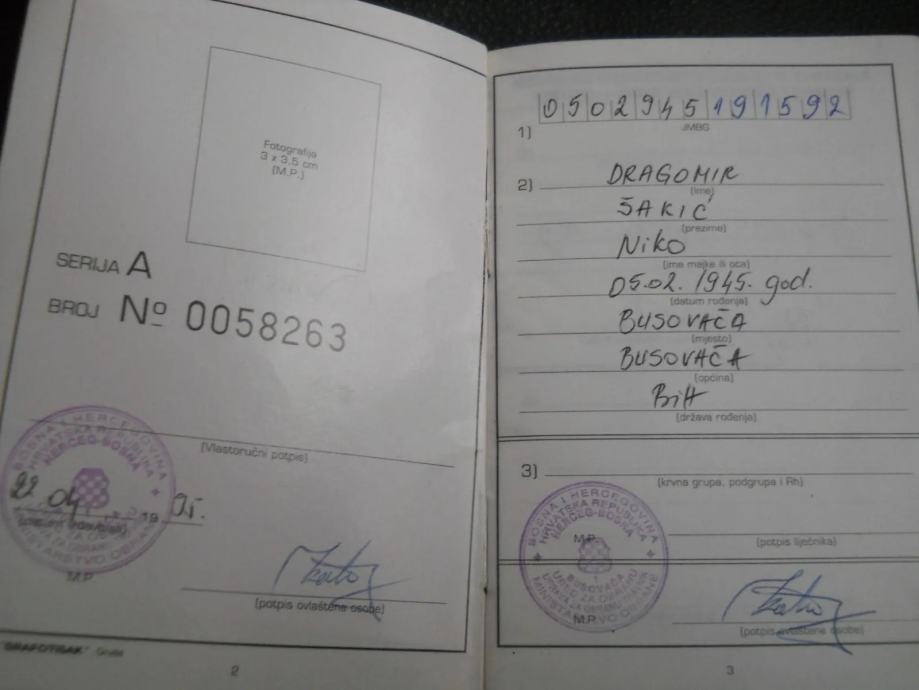 Fotografija
3 x 3,5 cm
(M.P.)
SERIJA A
BROJ Nº 0058263
(Vlastoručni potpis)
BOSNA I HERCEGOVINA
HRVATSKA REPUBLIKA
HERCEG-BOSNA
22. 04. 19 95.
MINISTARSTVO OBRANE
M.P.
(potpis ovlaštene osobe)
"GRAFOTISAK" Grude
2
0502945191592
1) JMBG
2) DRAGOMIR
(ime)
ŠAKIĆ
(prezime)
Niko
(ime majke ili oca)
05.02.1945. god.
(datum rođenja)
BUSOVAČA
(mjesto)
BUSOVAČA
(općina)
BiH
(država rođenja)
3)
(krvna grupa, podgrupa i Rh)
BOSNA I HERCEGOVINA
HRVATSKA REPUBLIKA
HERCEG-BOSNA
M.P.
(potpis liječnika)
BUSOVAČA
URED ZA OBRANU
MINISTARSTVO OBRANE
M.P.
(potpis ovlaštene osobe)
3